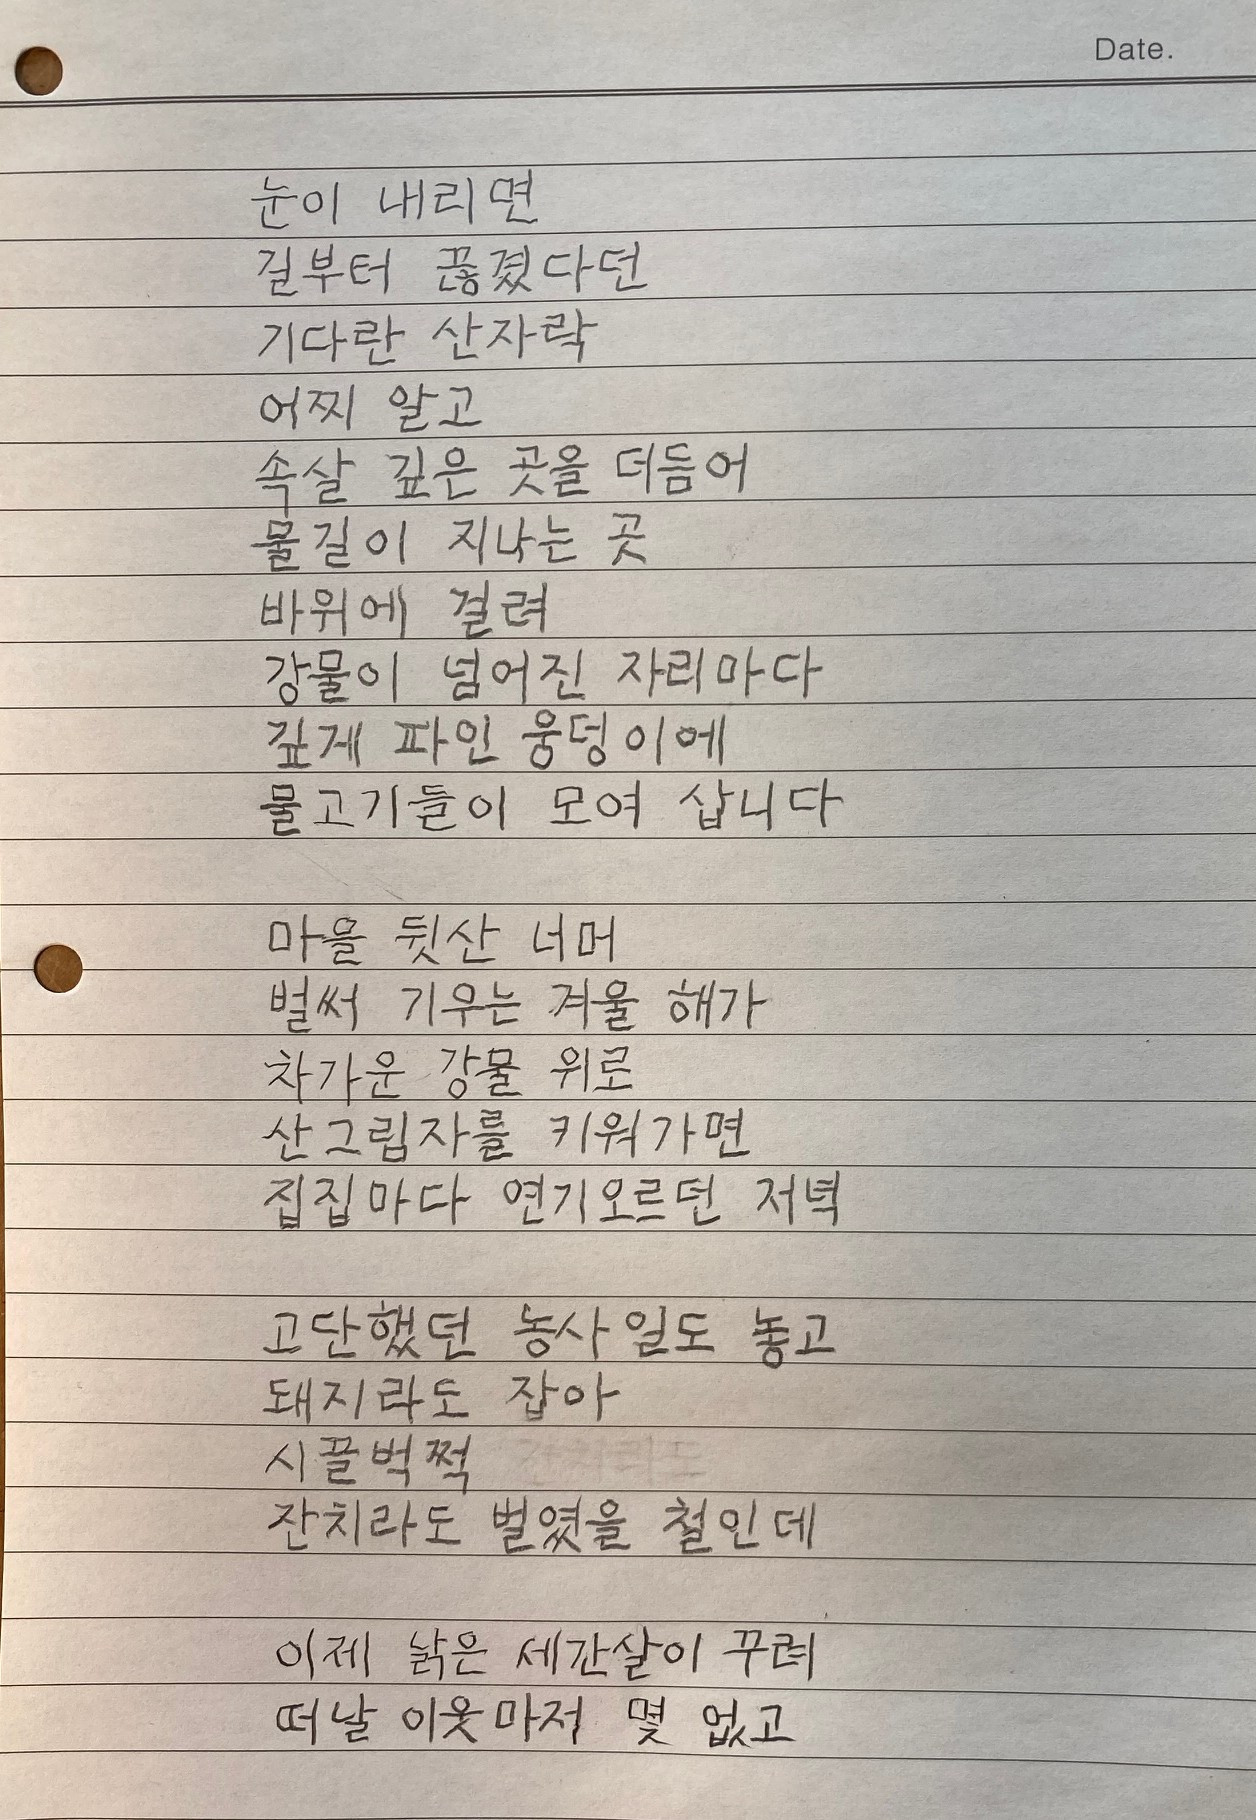 Date.
눈이 내리면
길부터 끊겼다던
기다란 산자락
어찌 알고
속살 깊은 곳을 더듬어
물길이 지나는 곳
바위에 걸려
강물이 넘어진 자리마다
깊게 파인 웅덩이에
물고기들이 모여 삽니다
마을 뒷산 너머
벌써 기우는 겨울 해가
차가운 강물 위로
산그림자를 키워가면
집집마다 연기오르던 저녁
고단했던 농사일도 놓고
돼지라도 잡아
시끌벅쩍 잔치라도
잔치라도 벌였을 철인데
이제 낡은 세간살이 꾸려
떠날 이웃마저 몇 없고